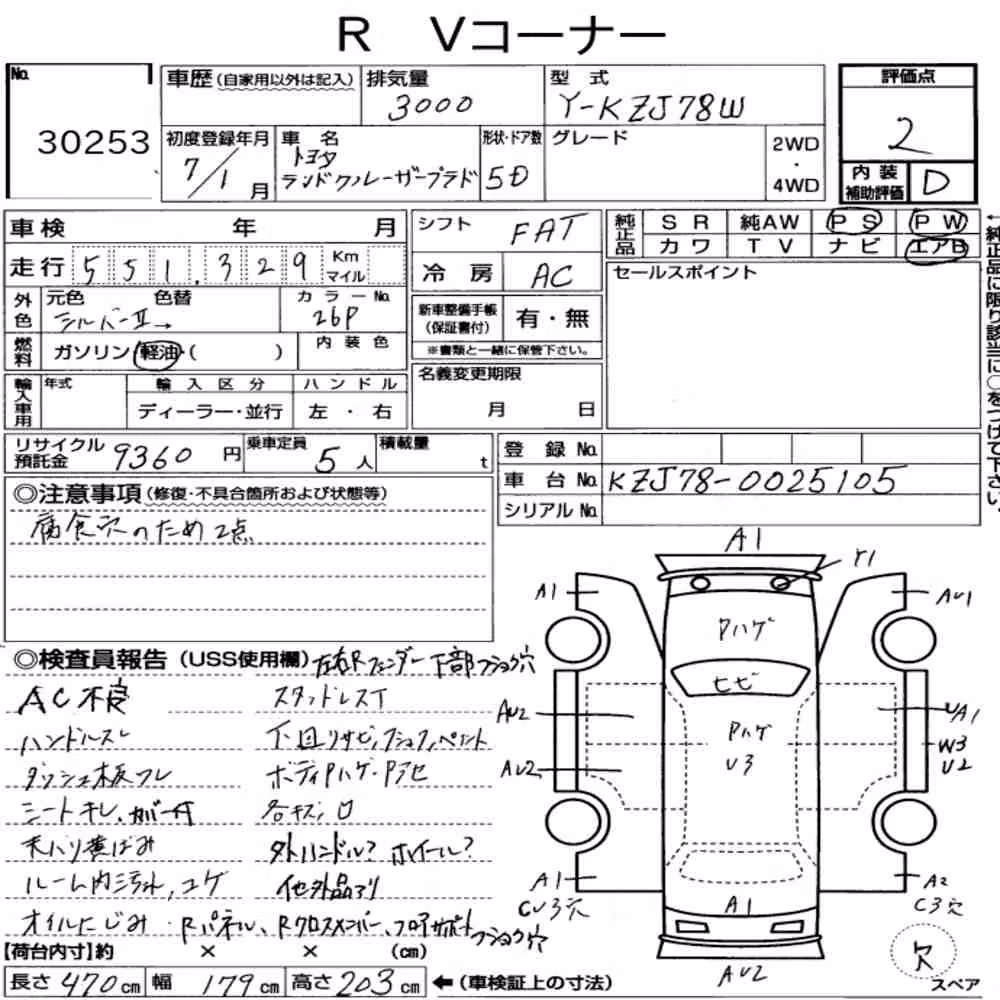 R Vコーナー
No.
30253
車歴(自家用以外は記入)
排気量
3000
型式
Y-KZJ78W
評価点
2
初度登録年月
7/1月
車名
トヨタ
ランドクルーザープラド
形状・ドア数
5D
グレード
2WD
・
4WD
内装
補助評価
D
車検 年 月
シフト
FAT
純正品
SR 純AW PS PW
カワ TV ナビ エアB
←純正品に限り該当に○をつけて下さい。
走行 551,329 Km マイル
冷房
AC
セールスポイント
外色
元色 色替
シルバーII→
カラーNo.
26P
新車整備手帳
(保証書付)
有・無
※書類と一緒に保管下さい。
燃料
ガソリン・軽油・( )
内装色
名義変更期限
月 日
輸入車用
年式
輸入区分
ハンドル
ディーラー・並行
左・右
リサイクル
預託金
9360円
乗車定員
5人
積載量
t
登録No.
車台No. KZJ78-0025105
シリアルNo.
◎注意事項(修復・不具合箇所および状態等)
腐食穴のため2点
◎検査員報告(USS使用欄)
左右Rフェンダー下部フショク穴
AC不良
スタッドレスT
ハンドルスレ
下回リサビ、フショク、ペイント
ダッシュ板ワレ
ボディPハゲ・Pアセ
シートキレ、カバー付
各キズ、凹
天ハリ黄ばみ
外ハンドル? ホイール?
ルーム内汚れ、コゲ
他外品アリ
オイルにじみ・Rパネル、Rクロスメンバー、フロアサポートフショク穴
A1
Y1
A1
AU1
Pハゲ
ヒビ
AU2
UA1
Pハゲ
U3
W3
U2
AU2
A1
CU3穴
A1
A2
C3穴
AU2
欠
スペア
【荷台内寸】約 × × (cm)
長さ470cm 幅179cm 高さ203cm ←(車検証上の寸法)